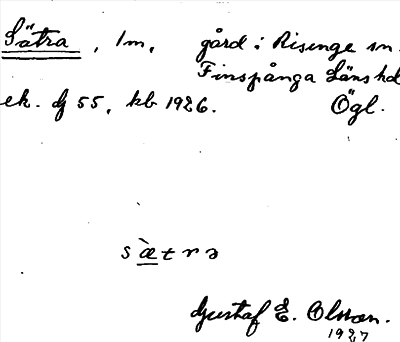 Sätra, 1 m, gård i Risinge sn.
Finspånga Länshd
ek. dj 55, kb 1926. Ögl.
s æ̀ t r ə
Gustaf E. Olsson.
1927